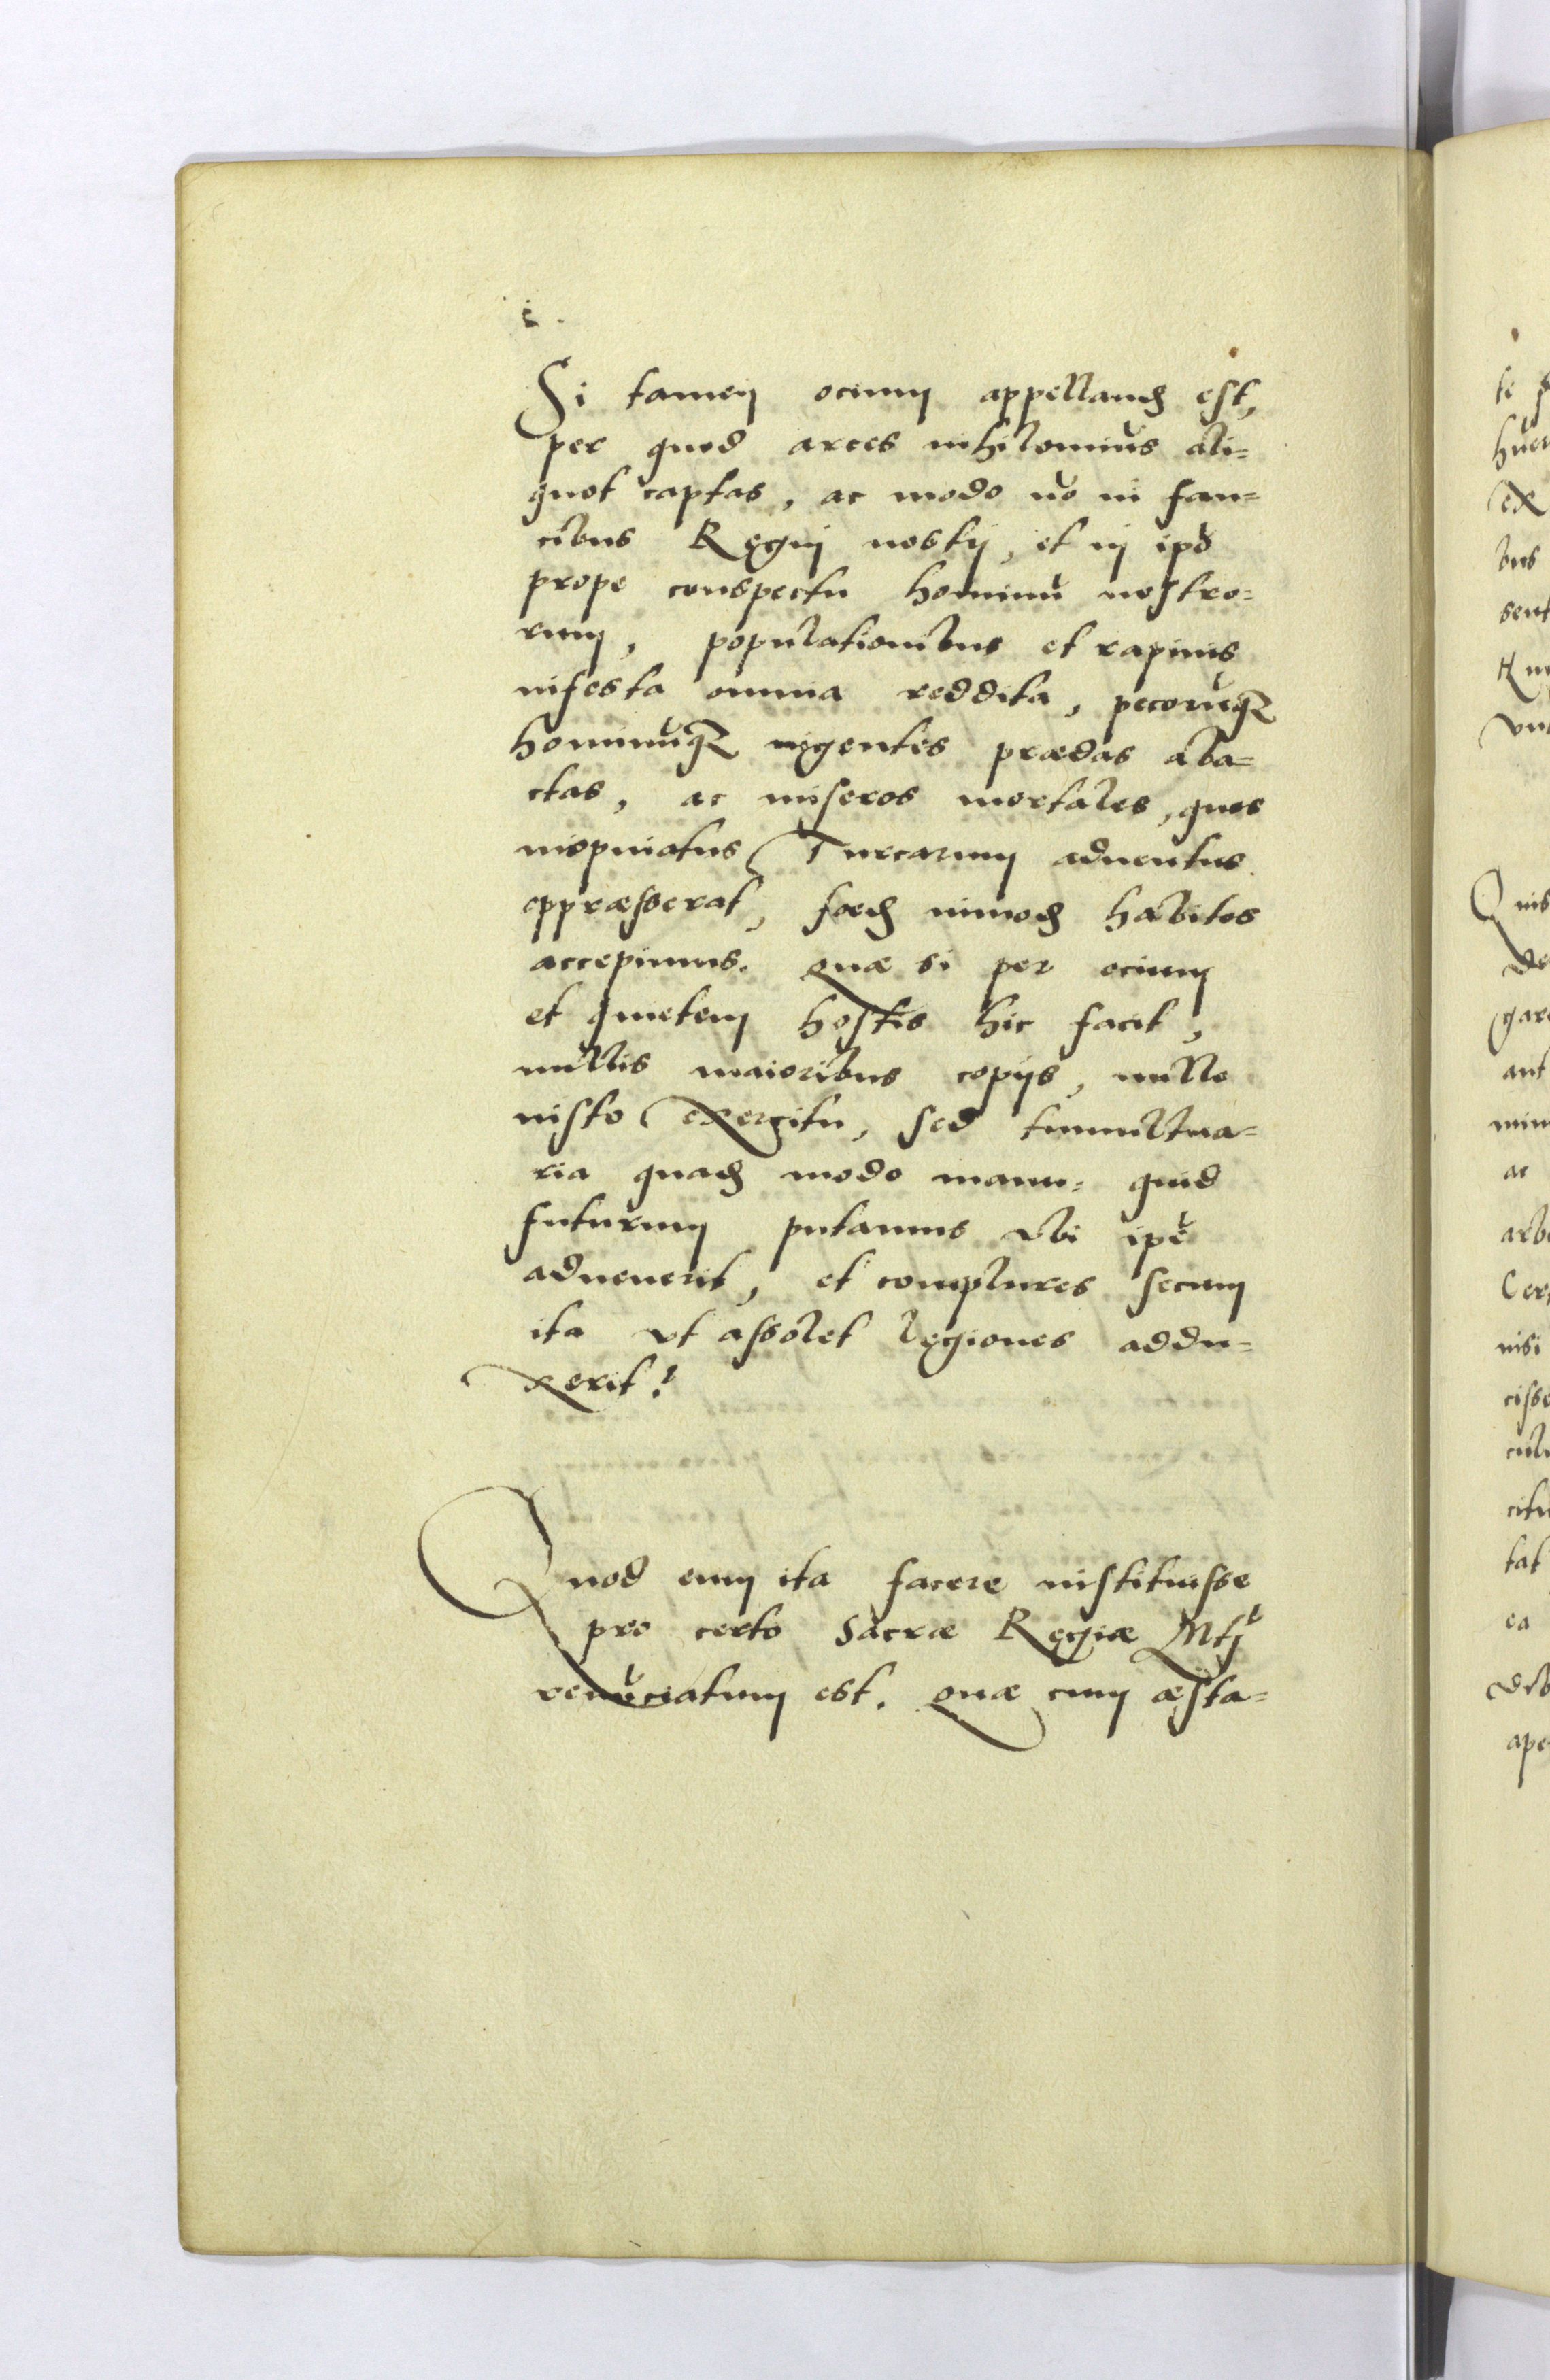 Si tamen ocium appellandū est,
per quod arces nihilominus ali=
quot captas, ac modo vo in fau=
cibus Regni nostri, et in ipo
prope conspectu hominū nostro=
rum, populationibus et rapinis
infesta omnia reddita, pecorūq;
hominūq; ingentes prædas aba=
ctas, ac miseros mortales, quos
inopinatus Turcarum aduentus
oppræsserat, foedū inmodū habitos
accepimus. Quæ si per ocium
et quietem hostis hic facit,
nullis maioribus copijs, nullo
iusto exercitu, sed tumultua=
ria quadā modo manu: quid
futurum putamus vbi ipē
aduenerit, et complures secum
ita vt assolet legiones addu=
xerit?
Quod eum ita facere instituisse
pro certo Sacræ Regiæ Mtj
renūciatum est. Quæ cum æsta=
te
huer
ex
bus
sent
Quis
de
gar
aut
ac
arb
Cer
nisi
cisse
citu
tat
ea
ape